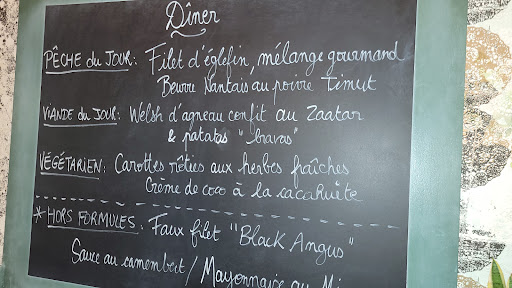 Dîner
PÊCHE du JOUR: Filet d'églefin, mélange gourmand
Beurre Nantais au poivre Timut
VIANDE du JOUR: Welsh d'agneau confit au Zaatar
& patatas "bravas"
VÉGÉTARIEN: Carottes rôties aux herbes fraîches
Crème de coco à la cacahuète
* HORS FORMULES: Faux filet "Black Angus"
Sauce au camembert / Mayonnaise au